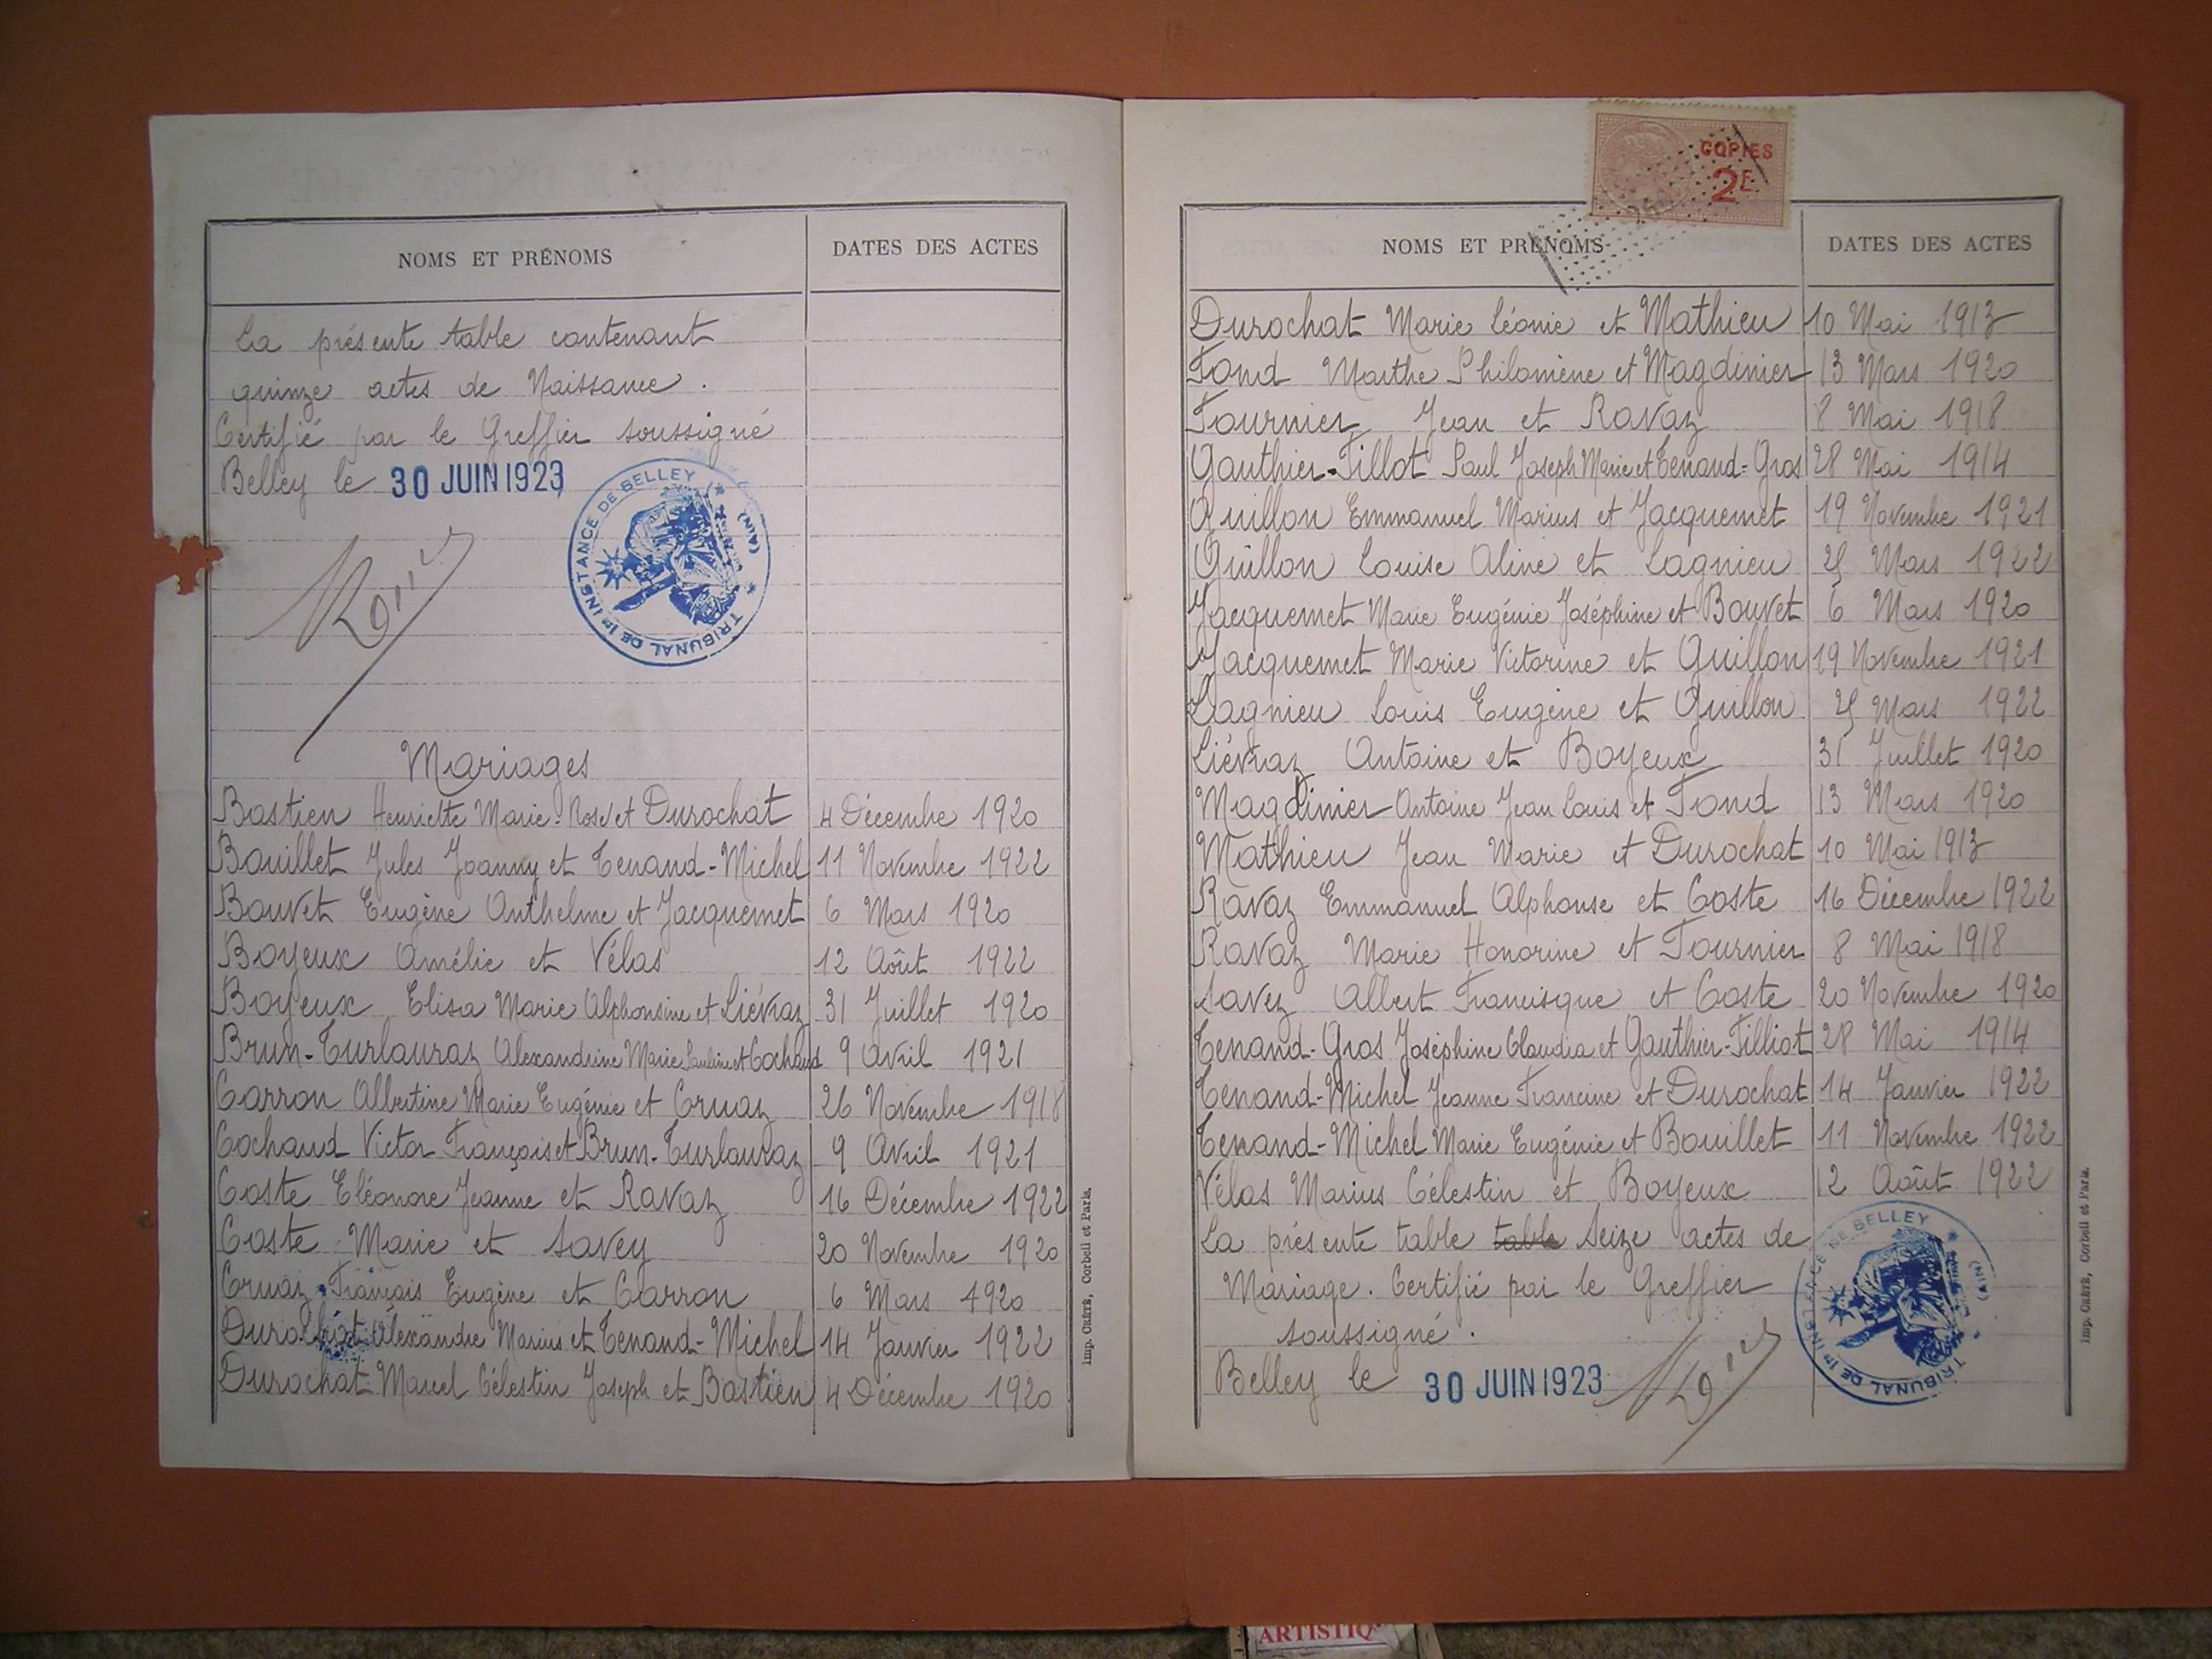 NOMS ET PRÉNOMS
DATES DES ACTES
La présente table contenant
quinze actes de Naissance.
Certifié par le Greffier soussigné
Belley le 30 JUIN 1923
TRIBUNAL DE 1re INSTANCE DE BELLEY (AIN)
Mariages
Bastien Henriette Marie-Rose et Durochat 4 Décembre 1920
Bouillet Jules Joanny et Tenand-Michel 11 Novembre 1922
Bouvet Eugène Anthelme et Jacquemet 6 Mars 1920
Boyeux Amélie et Vélas 12 Août 1922
Boyeux Elisa Marie Alphonsine et Liévraz 31 Juillet 1920
Brun-Turlauraz Alexandrine Marie Pauline et Cochaud 9 Avril 1921
Carron Albertine Marie Eugénie et Cruaz 26 Novembre 1918
Cochaud Victor François et Brun-Turlauraz 9 Avril 1921
Coste Eléonore Jeanne et Ravaz 16 Décembre 1922
Coste Marie et Savey 20 Novembre 1920
Cruaz François Eugène et Carron 6 Mars 1920
Durochat Alexandre Marius et Tenand-Michel 14 Janvier 1922
Durochat Marcel Célestin Joseph et Bastien 4 Décembre 1920
Imp. Corbeil et Paris.
COPIES
2F
NOMS ET PRÉNOMS
DATES DES ACTES
Durochat Marie Léonie et Mathieu 10 Mai 1913
Fond Marthe Philomène et Magdinier 13 Mars 1920
Fournier Jean et Ravaz 8 Mai 1918
Gauthier-Tillot Paul Joseph Marie et Tenand-Gros 28 Mai 1914
Guillon Emmanuel Marius et Jacquemet 19 Novembre 1921
Guillon Louise Aline et Lagnieu 25 Mars 1922
Jacquemet Marie Eugénie Joséphine et Bouvet 6 Mars 1920
Jacquemet Marie Victorine et Guillon 19 Novembre 1921
Lagnieu Louis Eugène et Guillon 25 Mars 1922
Liévraz Antoine et Boyeux 31 Juillet 1920
Magdinier Antoine Jean Louis et Fond 13 Mars 1920
Mathieu Jean Marie et Durochat 10 Mai 1913
Ravaz Emmanuel Alphonse et Coste 16 Décembre 1922
Ravaz Marie Honorine et Fournier 8 Mai 1918
Savez Albert Francisque et Coste 20 Novembre 1920
Tenand-Gros Joséphine Claudia et Gauthier-Tilliot 28 Mai 1914
Tenand-Michel Jeanne Francine et Durochat 14 Janvier 1922
Tenand-Michel Marie Eugénie et Bouillet 11 Novembre 1922
Vélas Marius Célestin et Boyeux 12 Août 1922
La présente table table Seize actes de
Mariage. Certifié par le Greffier
soussigné.
Belley le 30 JUIN 1923
TRIBUNAL DE 1re INSTANCE DE BELLEY (AIN)
Imp. Corbeil et Paris.